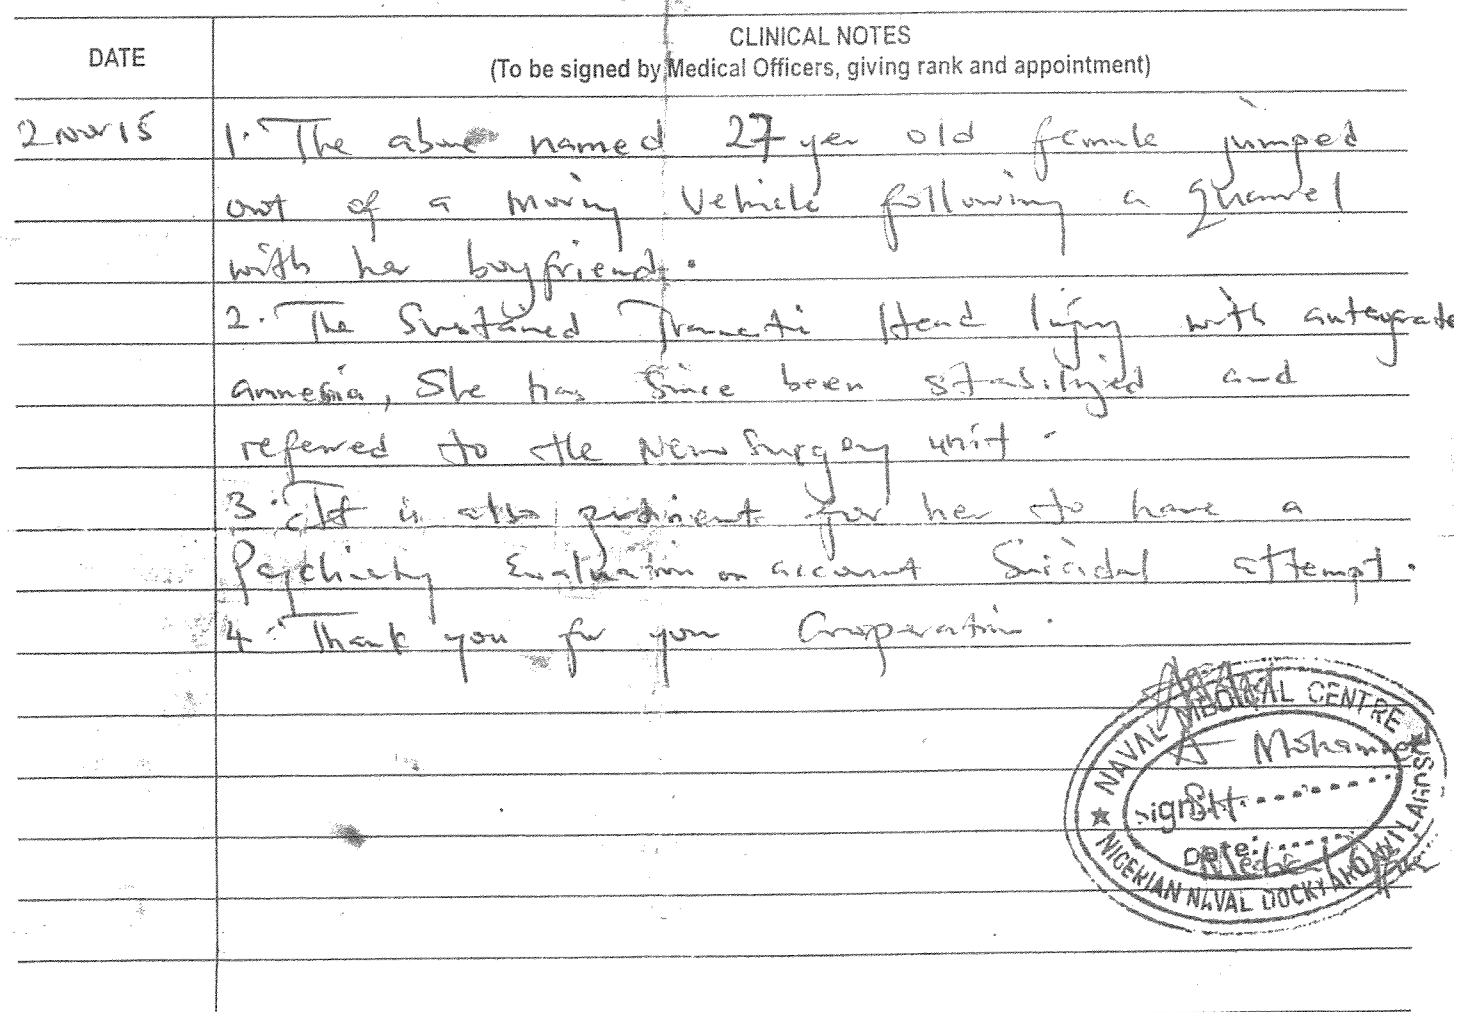 DATE
CLINICAL NOTES
(To be signed by Medical Officers, giving rank and appointment)
2 Nov 15
1. The above named 27 year old female jumped
out of a moving vehicle following a quarrel
with her boyfriend.
2. The Sustained Traumatic Head Injury with antegrade
amnesia, She has since been stabilized and
referred to the Neurosurgery unit.
3. It is also pertinent for her to have a
Psychiatry Evaluation on account Suicidal attempt.
4. Thank you for your Cooperation.
NAVAL MEDICAL CENTRE
A Mohammed
Sign:
Date:
NIGERIAN NAVAL DOCKYARD